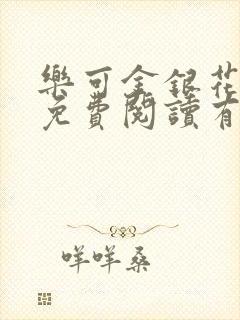 樂可金銀花
免費閱讀有
咩咩桑